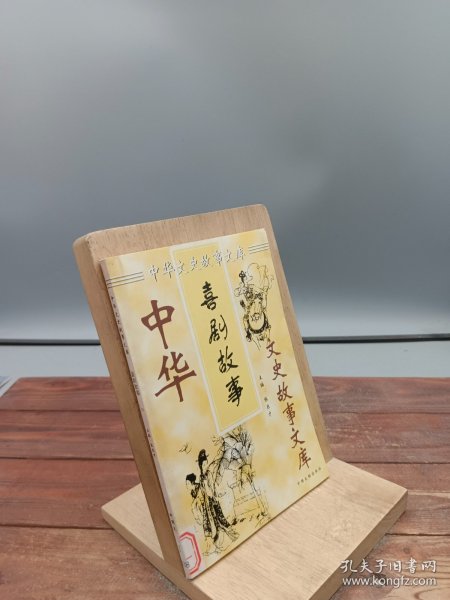 中华文史故事文库
中华
喜剧故事
文史故事文库
主编
孔夫子旧书网
www.kongfz.com